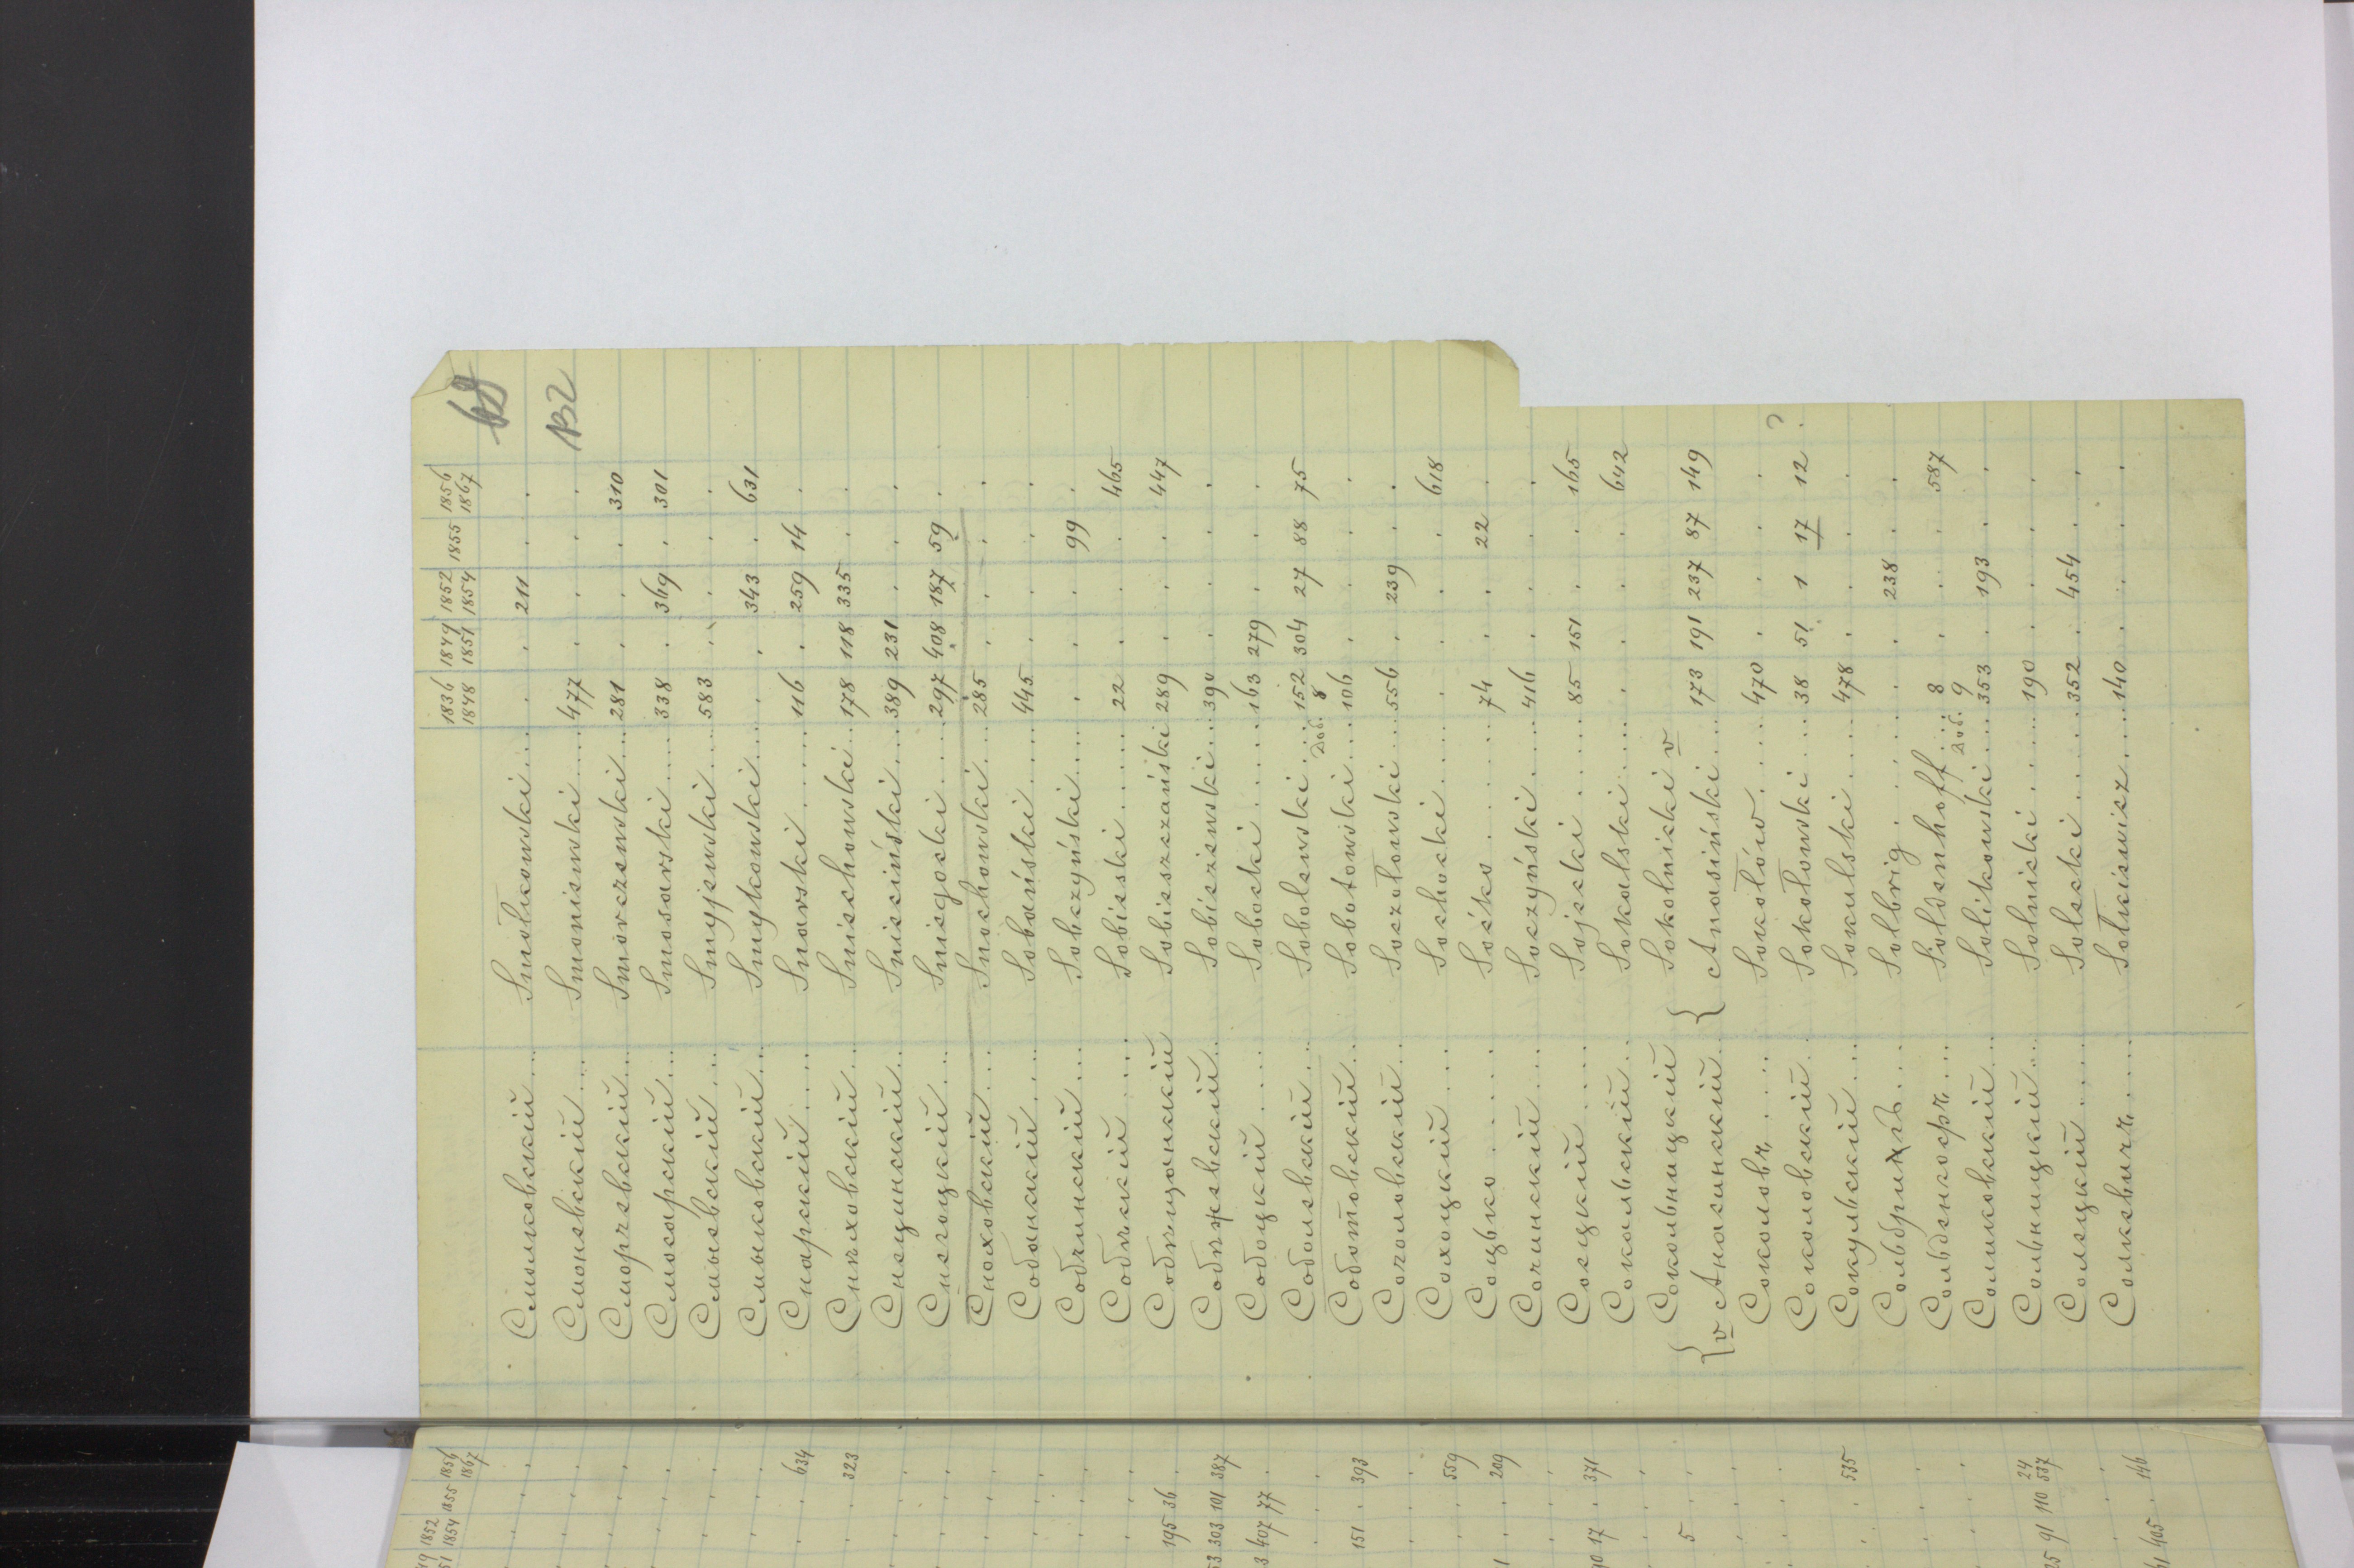 68
132
1836 1849 1852 1855 1856
1848 1851 1854 1867
Смолковскій.... Smołkowski.... . . 211 . .
Смоневскій.... Smoniewski.... 477 . . . .
Сморчевскій... Smorczewski... 281 . . . 310
Смосарскій... Smosarski.... 338 . 369 . 301
Смыевскій.... Smyjewski.... 583 . . . .
Смыковскій... Smykowski.... . . 343 . 631
Снарскій..... Snarski..... 116 . 259 14 .
Снѣховскій... Śniechowski... 178 118 335 . .
Снецинскій... Śnieciński... 389 231 . . .
Снегоцкій... Śniegocki.... 297 408 187 59 .
Сноховскій.... Snochowski... 285 . . . .
Собанскій.... Sobański..... 445 . . . .
Собчинскій... Sobczyński.... . . . 99 .
Собѣскій.... Sobieski..... 22 . . . 465
Собѣщанскій Sobieszczański 289 . . . 447
Собѣжевскій.. Sobieżewski... 390 . . . .
Собоцкій.... Sobocki..... 163 279 . . .
Соболевскій... Sobolewski.... 152 304 27 88 75
Доб. 8
Соботовскій.. Sobotowski... 106 . . . .
Сочоловскій... Soczołowski... 556 . 239 . .
Сохоцкій.... Sochocki..... . . . . 618
Соцько..... Soćko...... 74 . . 22 .
Сочинскій.... Soczyński.... 416 . . . .
Соецкій.... Sojecki..... 85 151 . . 165
Сокальскій... Sokalski..... . . . . 642
Сокольницкій Sokolnicki v
{ v Анасинскій.. { Anasiński.... 173 191 237 87 149
Соколовъ..... Sokołów..... 470 . . . .
Соколовскій.. Sokołowski.... 38 51 1 17 12 ?
Сокульскій.... Sokulski..... 478 . . . .
Сольбригъ.... Solbrig..... . . 238 . .
Сольденгофъ.... Soldenhoff... 8 . . . 587
Доб. 9
Соликовскій... Solikowski.... 353 . 193 . .
Сольницкій... Solnicki..... 190 . . . .
Солецкій.... Solecki..... 352 . 454 . .
Солкевичъ.... Sołkiewicz.... 140 . . . .
1852 1855 1856
1854 1867
634
323
195 36 .
303 101 387
407 77 .
151 . 393
559
209
17 . 371
5
535
24
91 110 537
405 . 146